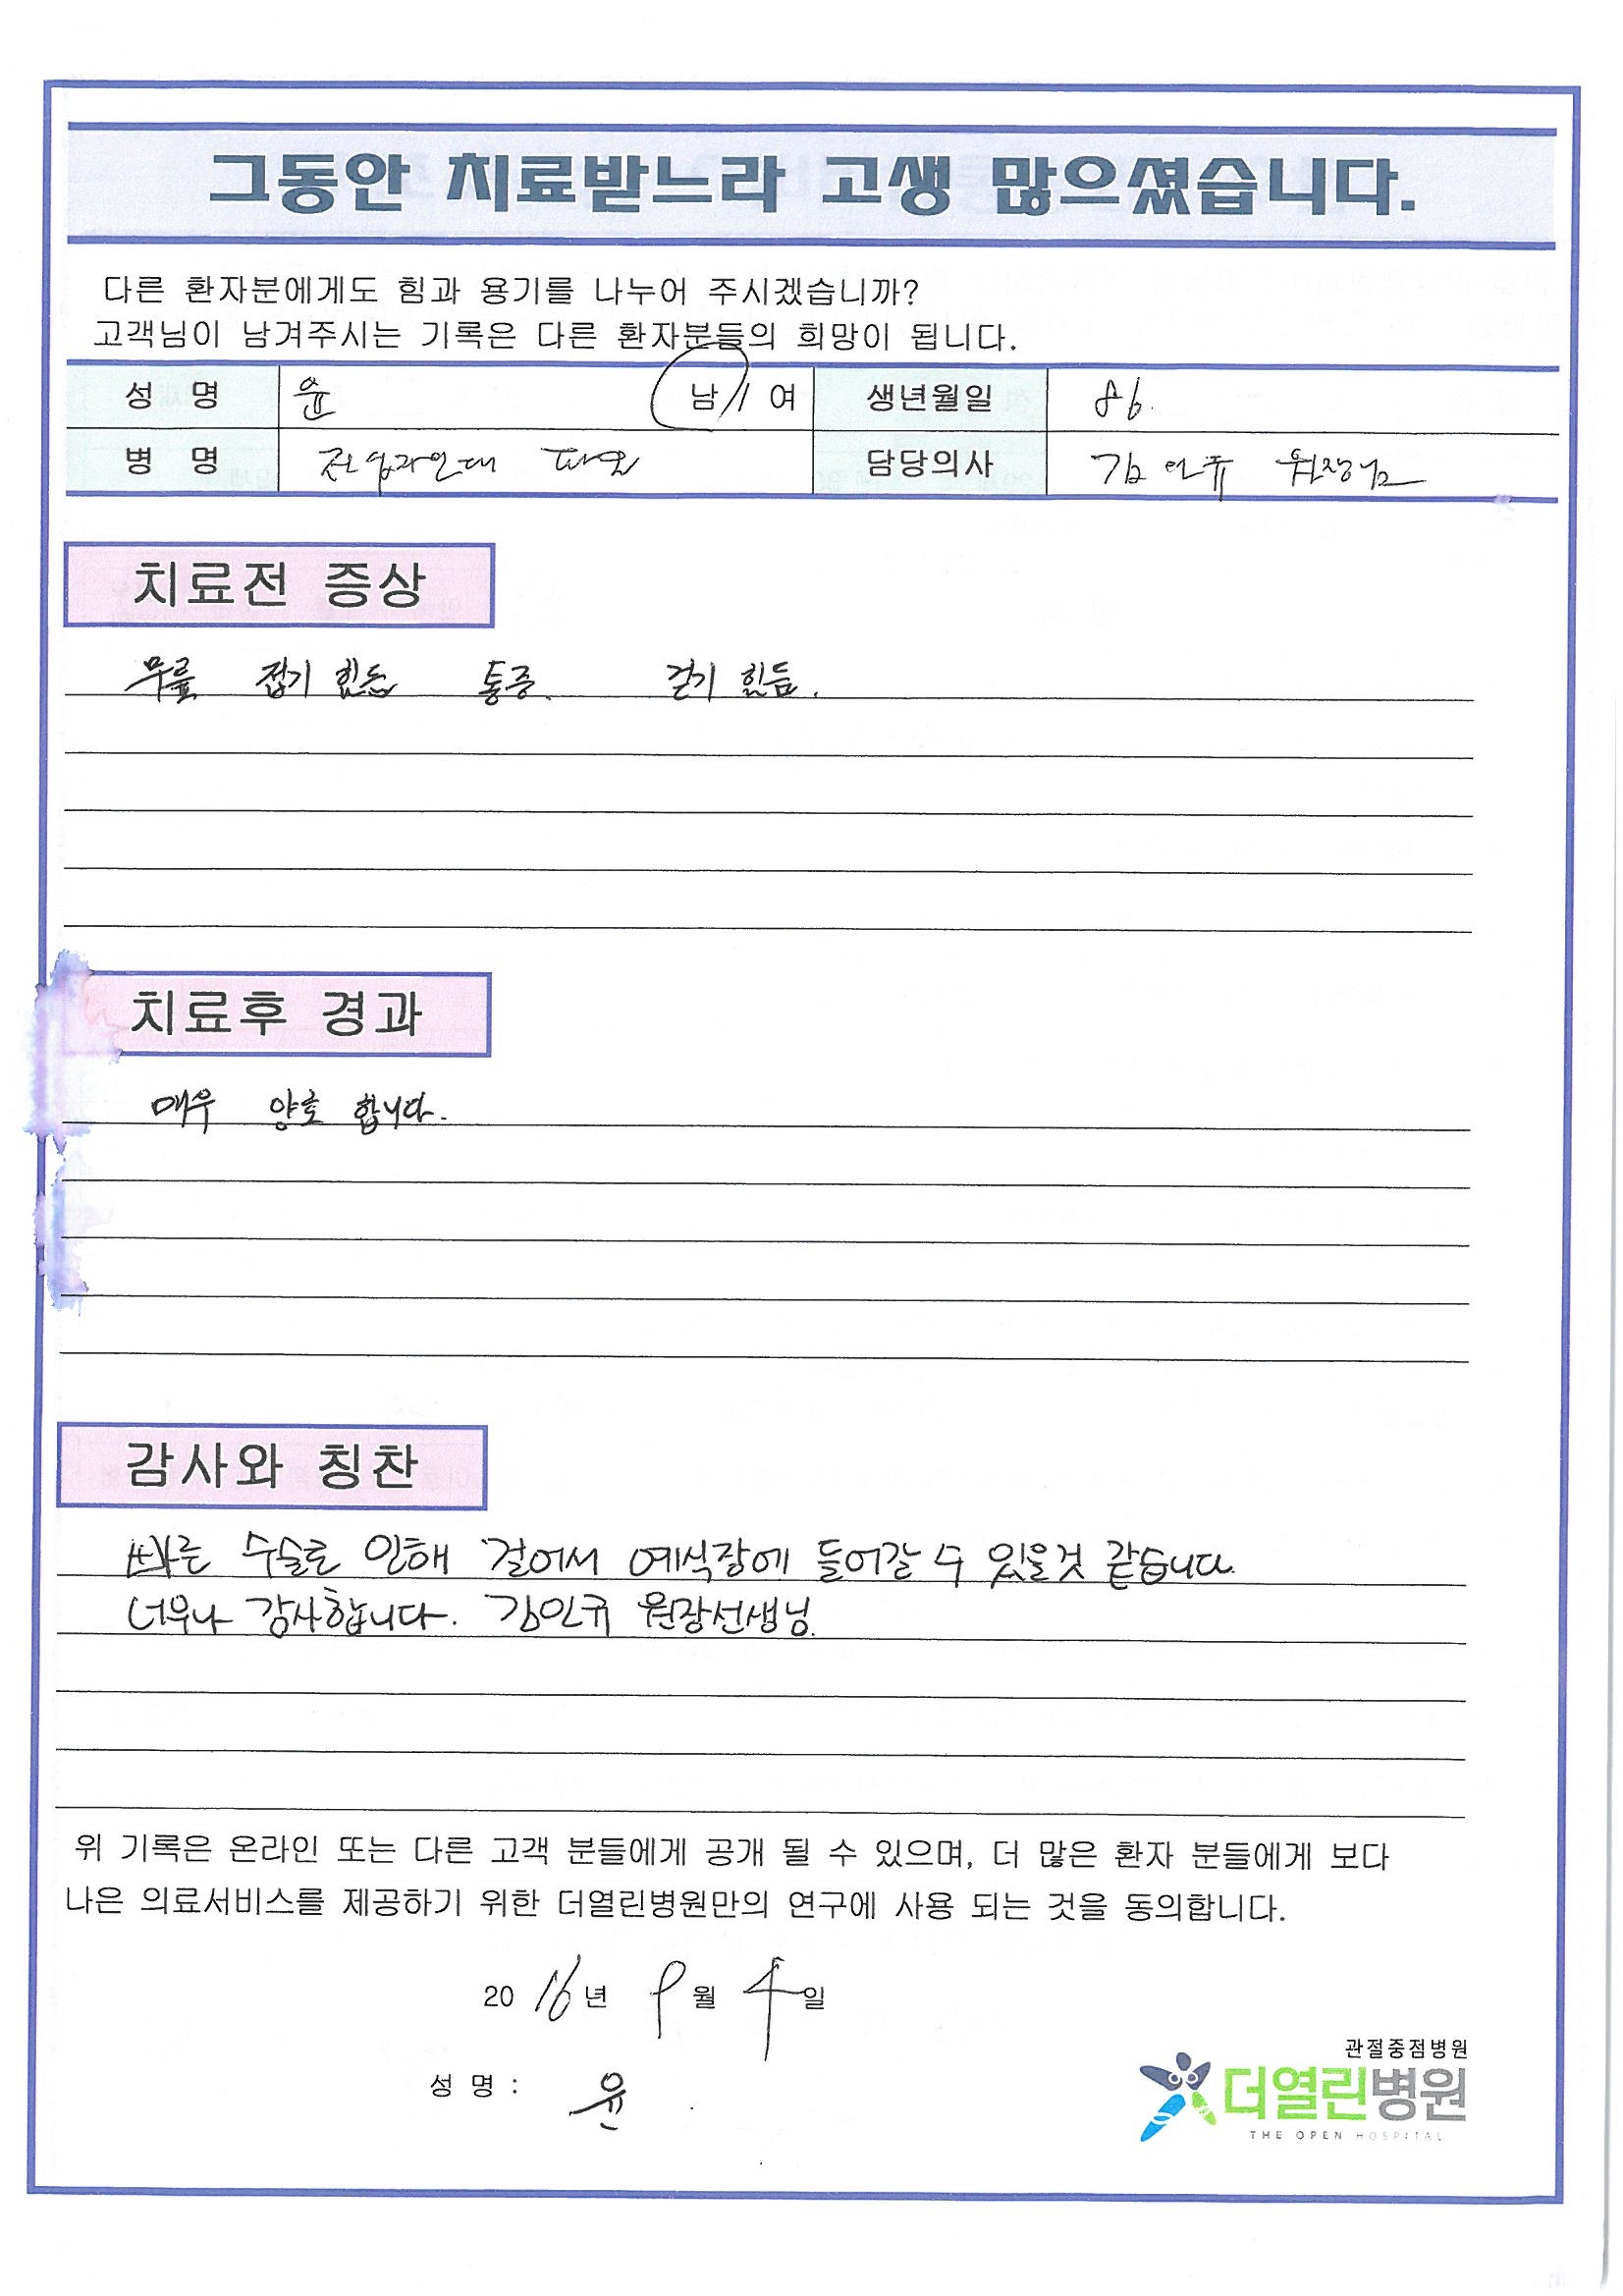 그동안 치료받느라 고생 많으셨습니다.
다른 환자분에게도 힘과 용기를 나누어 주시겠습니까?
고객님이 남겨주시는 기록은 다른 환자분들의 희망이 됩니다.
성 명 윤 남 / 여 생년월일 86.
병 명 전십자인대 파열 담당의사 김인규 원장님
치료전 증상
무릎 접기 힘듬 통증. 걷기 힘듬.
치료후 경과
매우 양호 합니다.
감사와 칭찬
빠른 수술로 인해 걸어서 예식장에 들어갈 수 있을것 같습니다.
너무나 감사합니다. 김인규 원장선생님.
위 기록은 온라인 또는 다른 고객 분들에게 공개 될 수 있으며, 더 많은 환자 분들에게 보다
나은 의료서비스를 제공하기 위한 더열린병원만의 연구에 사용 되는 것을 동의합니다.
2016년 9월 4일
성 명 : 윤
관절중점병원
더열린병원
THE OPEN HOSPITAL